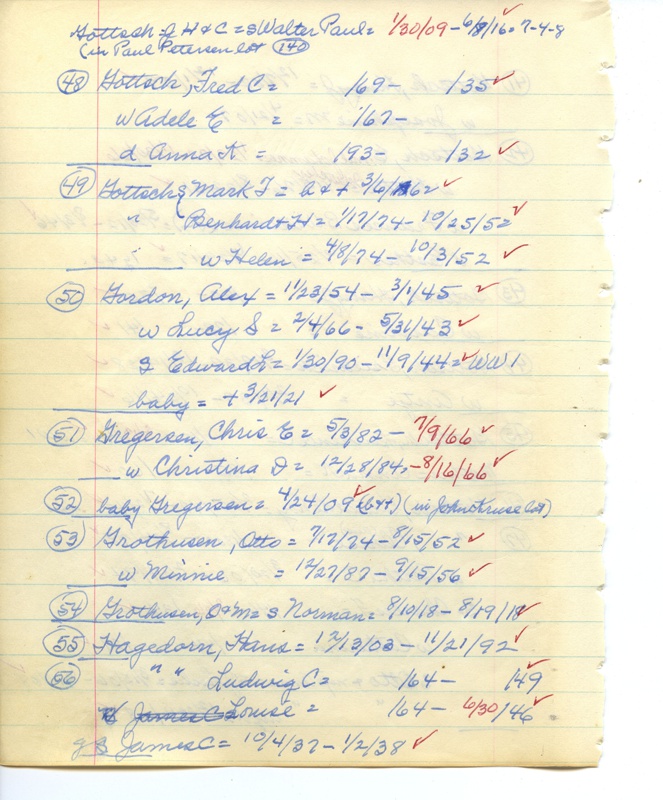 Gottsch of H & C = s Walter Paul = 1/30/09 - 6/8/16 = 7-4-8
(in Paul Petersen lot 140)
48 Gottsch, Fred C = 169 135 ✓
w Adele E = 167 -
d Anna K = 193 - 132 ✓
49 Gottsch Mark F = b & + 3/6/62 ✓
" Bernhardt H = 1/17/74 - 10/25/52 ✓
" w Helen = 4/8/74 - 10/3/52 ✓
50 Gordon, Alex = 11/23/54 - 3/1/45 ✓
w Lucy S = 2/4/66 - 5/31/43 ✓
s Edward L = 1/30/90 - 11/9/44 = ✓ WW 1
baby = + 3/21/21 ✓
51 Gregersen, Chris E = 5/3/82 - 7/9/66 ✓
w Christina D = 12/28/84, - 8/16/66 ✓
52 baby Gregersen = 4/24/09 ✓ (b & +) (in John Kruse lot)
53 Grothusen, Otto = 7/17/74 - 8/15/52 ✓
w Minnie = 12/27/87 - 9/15/56 ✓
54 Grothusen, O & M = s Norman = 8/10/18 - 8/19/18 ✓
55 Hagedorn, Hans = 12/13/03 - 11/21/92 ✓
56 " " Ludwig C = 164 - 149 ✓
w James C Louise = 164 - 6/30/46 ✓
gs James C = 10/4/37 - 1/2/38 ✓